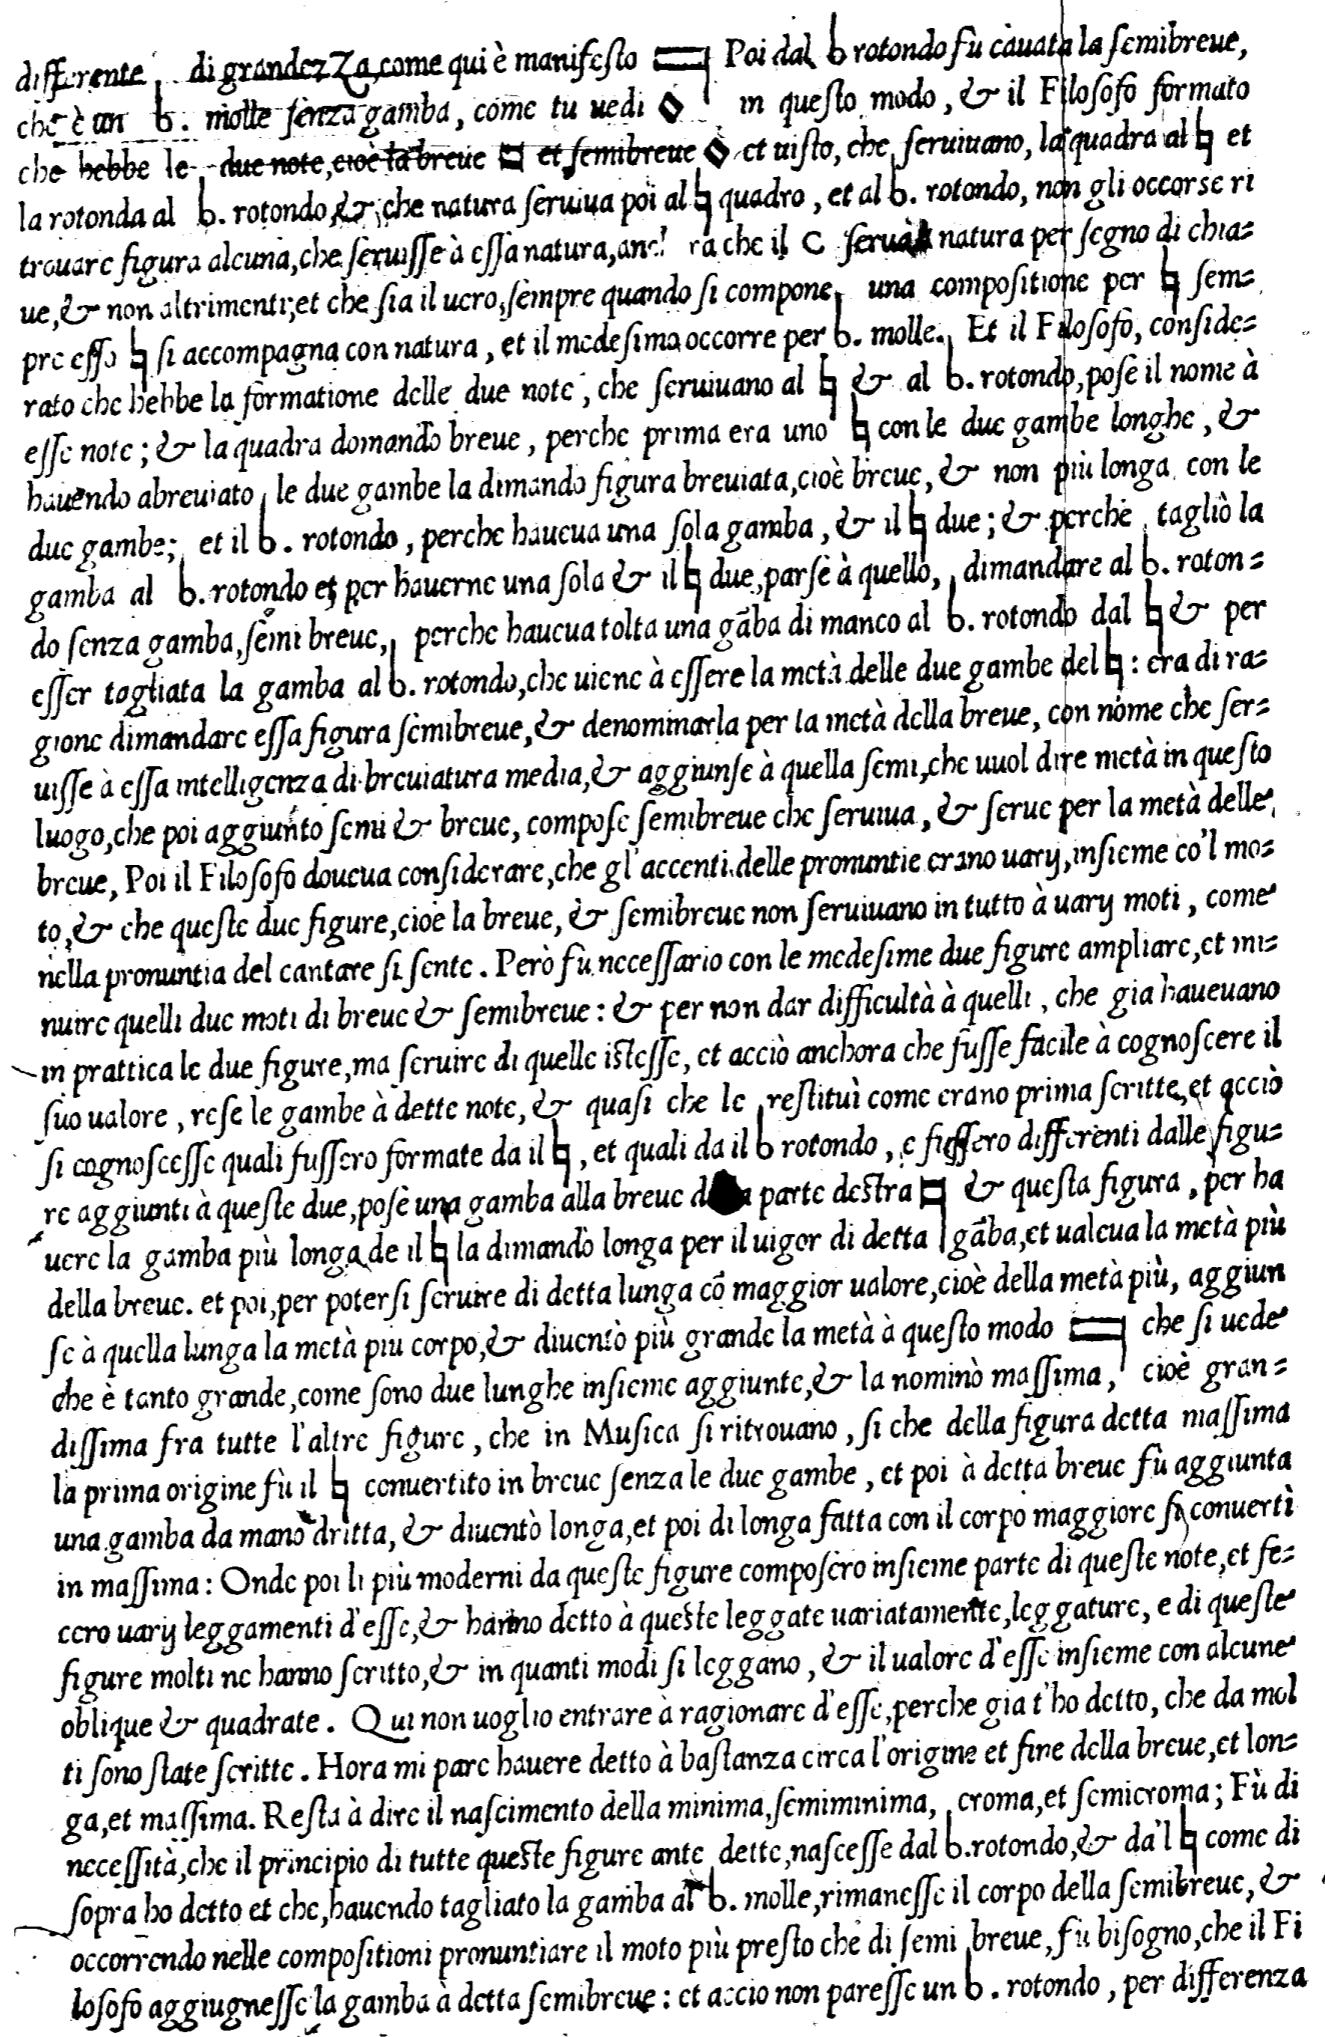 differente di grandezza, come qui è manifesto Poi dal b rotondo fù cauata la ſemibreue,
che è un b. molle ſenza gamba, come tu uedi in queſto modo, & il Filoſofo formato
che hebbe le due note, cioè la breue et ſemibreue et uiſto, che ſeruiuano, la quadra al ♮ et
la rotonda al b. rotondo, & che natura ſeruiua poi al ♮ quadro, et al b. rotondo, non gli occorſe ri
trouare figura alcuna, che ſeruiſſe à eſſa natura, che il C natura per ſegno di chia-
ue, & non altrimenti; et che ſia il uero, ſempre quando ſi compone una compoſitione per ♮ ſem-
pre eſſo ♮ ſi accompagna con natura, et il medeſimo occorre per b. molle. Et il Filoſofo, conſide-
rato che hebbe la formatione delle due note, che ſeruiuano al ♮ & al b. rotondo, poſe il nome à
eſſe note; & la quadra domandò breue, perche prima era uno ♮ con le due gambe longhe, &
hauendo abreuiato le due gambe la dimandò figura breuiata, cioè breue, & non più longa con le
due gambe; et il b. rotondo, perche haueua una ſola gamba, & il ♮ due; & perche tagliò la
gamba al b. rotondo et per hauerne una ſola & il ♮ due, parſe à quello, dimandare al b. roton-
do ſenza gamba, ſemi breue, perche haueua tolta una gãba di manco al b. rotondo dal ♮ & per
eſſer tagliata la gamba al b. rotondo, che uiene à eſſere la metà delle due gambe del ♮: era di ra-
gione dimandare eſſa figura ſemibreue, & denominarla per la metà della breue, con nome che ſer-
uiſſe à eſſa intelligenza di breuiatura media, & aggiunſe à quella ſemi, che uuol dire metà in queſto
luogo, che poi aggiunto ſemi & breue, compoſe ſemibreue che ſeruiua, & ſerue per la metà delle
breue, Poi il Filoſofo doueua conſiderare, che gl'accenti delle pronuntie erano uarij, inſieme co'l mo-
to, & che queſte due figure, cioè la breue, & ſemibreue non ſeruiuano in tutto à uarij moti, come
nella pronuntia del cantare ſi ſente. Però fù neceſſario con le medeſime due figure ampliare, et mi-
nuire quelli due moti di breue & ſemibreue: & per non dar difficultà à quelli, che gia haueuano
in prattica le due figure, ma ſeruire di quelle iſteſſe, et acciò anchora che fuſſe facile à cognoſcere il
ſuo ualore, reſe le gambe à dette note, & quaſi che le reſtituì come erano prima ſcritte, et acciò
ſi cognoſceſſe quali fuſſero formate da il ♮, et quali da il b rotondo, e fuſſero differenti dalle figu-
re aggiunti à queſte due, poſe una gamba alla breue parte deſtra & queſta figura, per ha
uere la gamba più longa de il ♮ la dimandò longa per il uigor di detta gãba, et ualeua la metà più
della breue. et poi, per poterſi ſeruire di detta lunga cõ maggior ualore, cioè della metà più, aggiun
ſe à quella lunga la metà piu corpo, & diuentò più grande la metà à queſto modo che ſi uede
che è tanto grande, come ſono due lunghe inſieme aggiunte, & la nominò maſſima, cioè gran-
diſſima fra tutte l'altre figure, che in Muſica ſi ritrouano, ſi che della figura detta maſſima
la prima origine fù il ♮ conuertito in breue ſenza le due gambe, et poi à detta breue fù aggiunta
una gamba da mano dritta, & diuentò longa, et poi di longa fatta con il corpo maggiore ſi conuertì
in maſſima: Onde poi li più moderni da queſte figure compoſero inſieme parte di queſte note, et fe-
cero uarij leggamenti d'eſſe, & hanno detto à queſte leggate uariatamente, leggature, e di queſte
figure molti ne hanno ſcritto, & in quanti modi ſi leggano, & il ualore d'eſſe inſieme con alcune
oblique & quadrate. Qui non uoglio entrare à ragionare d'eſſe, perche gia t'ho detto, che da mol
ti ſono ſtate ſcritte. Hora mi pare hauere detto à baſtanza circa l'origine et fine della breue, et lon-
ga, et maſſima. Reſta à dire il naſcimento della minima, ſemiminima, croma, et ſemicroma; Fù di
neceſſità, che il principio di tutte queſte figure ante dette, naſceſſe dal b. rotondo, & da'l ♮ come di
ſopra ho detto et che, hauendo tagliato la gamba al b. molle, rimaneſſe il corpo della ſemibreue, &
occorrendo nelle compoſitioni pronuntiare il moto più preſto che di ſemi breue, fù biſogno, che il Fi
loſofo aggiugneſſe la gamba à detta ſemibreue: et accio non pareſſe un b. rotondo, per differenza